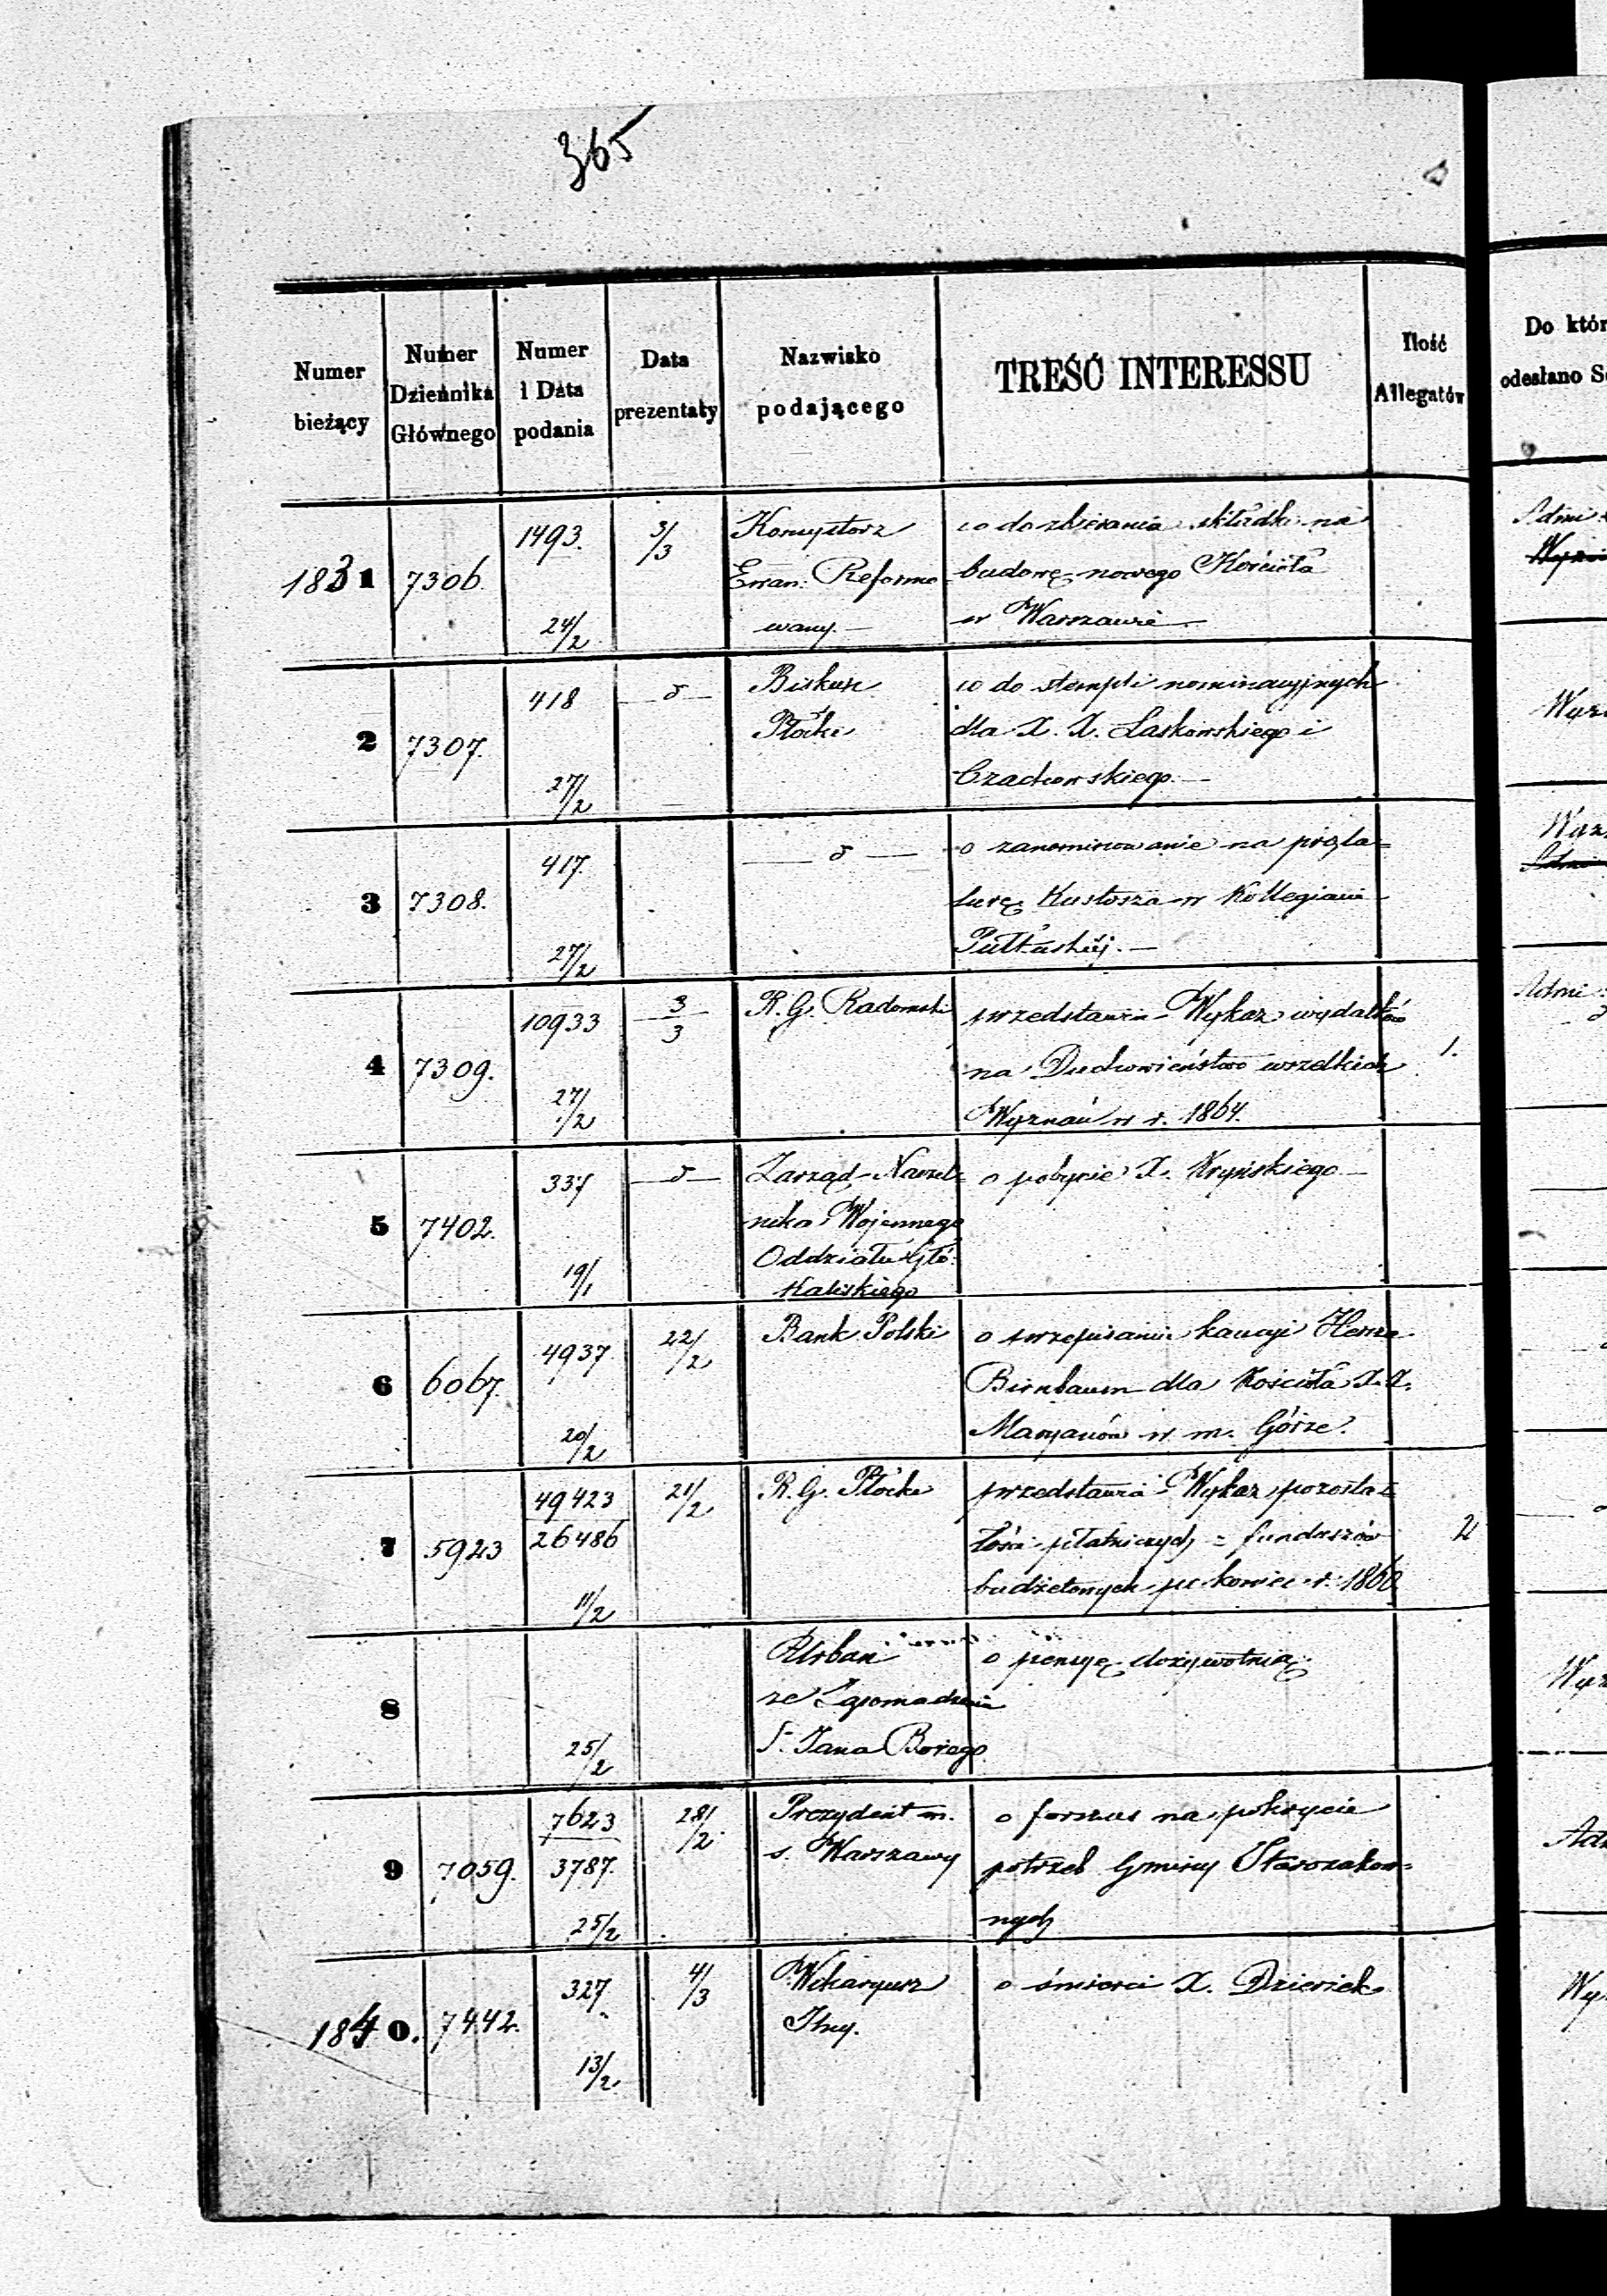 365
Numer bieżący | Numer Dziennika Głównego | Numer i Data podania | Data prezentaty | Nazwisko podającego | TREŚĆ INTERESSU | Ilość Allegatów | Do któr
odesłano
1831 7306. 1493. 24/2 3/3
Konsystorz
Ewan: Reformo
wany.—
co do zbierania składki na
budowę nowego Kościoła
w Warszawie—
Admi
2 7307. 418 27/2 —d—
Biskup
Płocki
co do stempli nominacyjnych
dla X. X. Laskowskiego i
Czachowskiego.—
3 7308. 417. 27/2
— d —
o zanominowanie na prała=
turę Kustosza w Kollegiacie
Pułtuskiéj.—
4 7309. 10933 27/2 3/3
R. G. Radomski
przedstawia Wykaz wydatków
na Duchowieństwo wszelkich
Wyznań w r. 1864.
1.
Admi:
5 7402. 337 19/1 —d—
Zarząd Naczel=
nika Wojennego
Oddziału Głó:
Kaliskiego
o pobycie X. Kryńskiego—
6 6067. 4937 20/2 22/2
Bank Polski
o przepisanie kaucyi
Birnbaum dla Kościoła X. X.
Maryanów w m. Górze.
7 5923 49423
26486 11/2 21/2
R. G. Płocki
przedstawia Wykaz pozosta=
łości płatniczych = funduszów
budżetowych po koniec r. 1860
2
8 25/2
Urban
ze Zgromadzenia
S. Jana Bożego
o pensyę dożywotnią.
9 7059. 7623
3787. 25/2 28/2
Prezydent m.
s. Warszawy
o forszus na pokrycie
potrzeb Gminy Starozakon=
nych
1840. 7442. 327 13/2 4/3
Wikaryusz
o śmierci X.